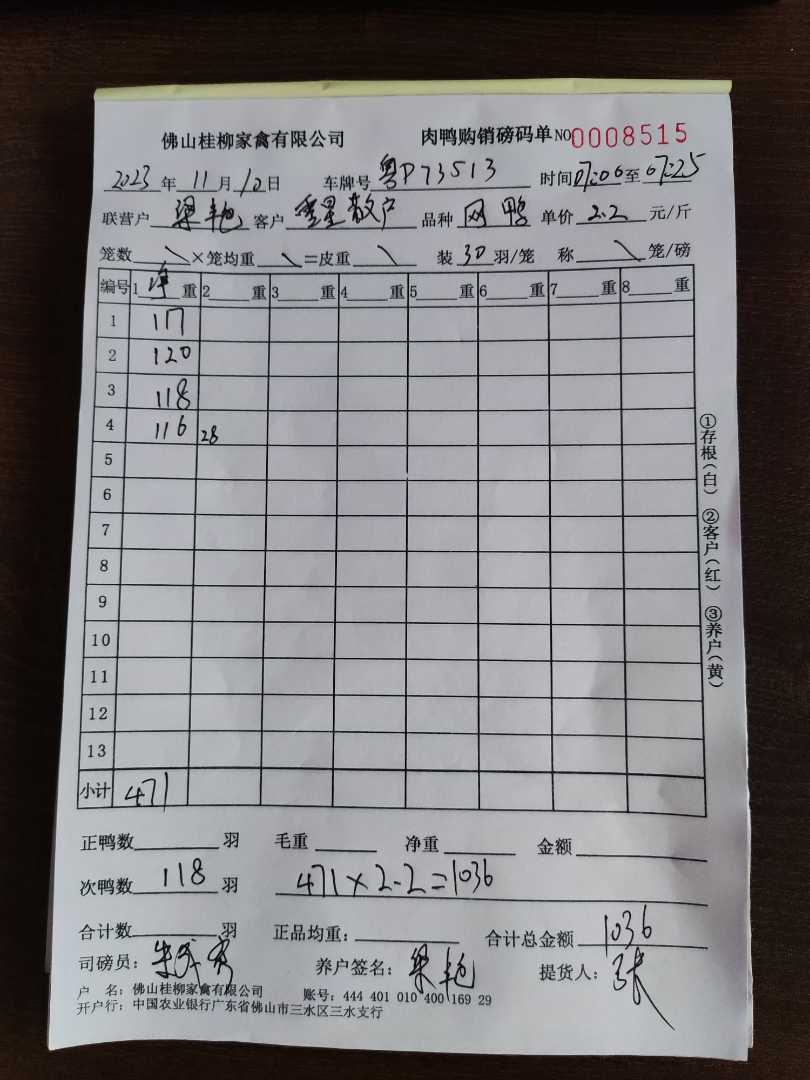 佛山桂柳家禽有限公司 肉鸭购销磅码单 NO 0008515
2023年11月10日 车牌号 粤P73513 时间07:06至07:25
联营户 梁艳 客户 散户 品种 网鸭 单价 2.2 元/斤
笼数\×笼均重\=皮重\ 装30羽/笼 称\笼/磅
编号 1净重 2重 3重 4重 5重 6重 7重 8重
1 117
2 120
3 118
4 116 28
5
6
7
8
9
10
11
12
13
小计 471
正鸭数 羽 毛重 净重 金额
次鸭数 118 羽 471×2.2=1036
合计数 羽 正品均重: 合计总金额 1036
司磅员: 养户签名: 梁艳 提货人: 张
户 名: 佛山桂柳家禽有限公司 账号: 444 401 010 400 169 29
开户行: 中国农业银行广东省佛山市三水区三水支行
①存根(白) ②客户(红) ③养户(黄)